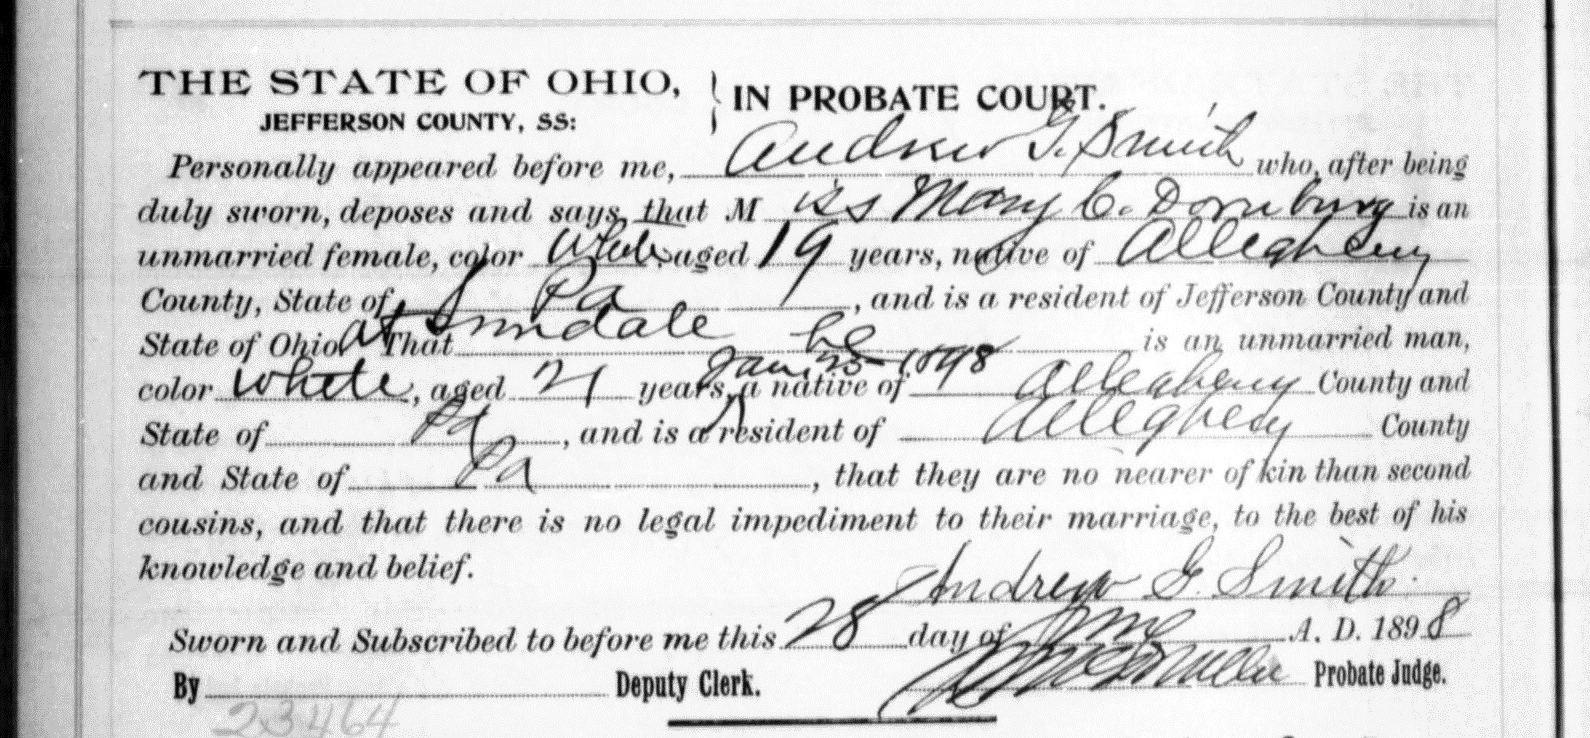 THE STATE OF OHIO, IN PROBATE COURT.
JEFFERSON COUNTY, SS:
Personally appeared before me, Andrew G. Smith who, after being
duly sworn, deposes and says, that M iss Mary C. Dornburg is an
unmarried female, color White aged 19 years, native of Allegheny
County, State of Pa, and is a resident of Jefferson County and
State of Ohio. That at he is an unmarried man,
color white, aged 21 years, Jan. 1898 a native of Allegheny County and
State of Pa, and is a resident of Allegheny County
and State of Pa, that they are no nearer of kin than second
cousins, and that there is no legal impediment to their marriage, to the best of his
knowledge and belief.
Andrew G. Smith.
Sworn and Subscribed to before me this 28 day of June A. D. 1898
By Deputy Clerk. Probate Judge.
23464